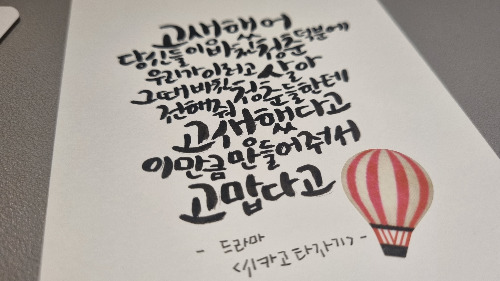 고생했어
당신들이 바친 청춘 덕분에
우리가 이러고 살아
그때 바친 청춘들한테
전해줘
고생했다고
이만큼 만들어줘서
고맙다고
- 드라마
<시카고 타자기> -